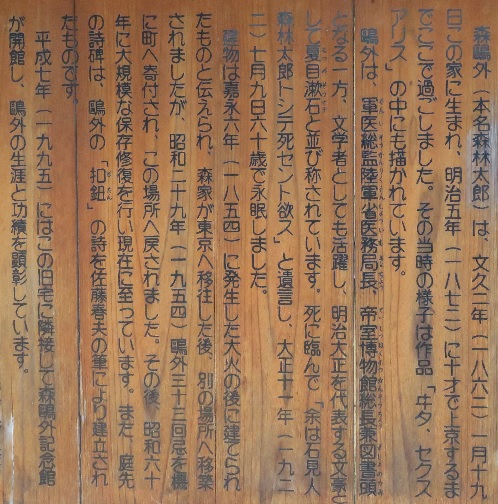 森鷗外（本名森林太郎）は、文久二年（一八六二）一月十九
日この家に生まれ、明治五年（一八七二）に十才で上京するま
でここで過ごしました。その当時の様子は作品「ヰタ、セクス
アリス」の中にも描かれています。
鷗外は、軍医総監陸軍省医務局長、帝室博物館総長兼図書頭
となる一方、文学者としても活躍し、明治大正を代表する文豪と
して夏目漱石と並び称されています。死に臨んで「余は石見人
森林太郎トシテ死セント欲ス」と遺言し、大正十一年（一九二
二）七月九日六十歳で永眠しました。
建物は嘉永六年（一八五四）に発生した大火の後に建てられ
たものと伝えられ、森家が東京へ移住した後、別の場所へ移築
されましたが、昭和二十九年（一九五四）鷗外三十三回忌を機
に町へ寄付され、この場所へ戻されました。その後、昭和六十
年に大規模な保存修復を行い現在に至っています。また、庭先
の詩碑は、鷗外の「扣鈕」の詩を佐藤春夫の筆により建立され
たものです。
平成七年（一九九五）にはこの旧宅に隣接して森鷗外記念館
が開館し、鷗外の生涯と功績を顕彰しています。